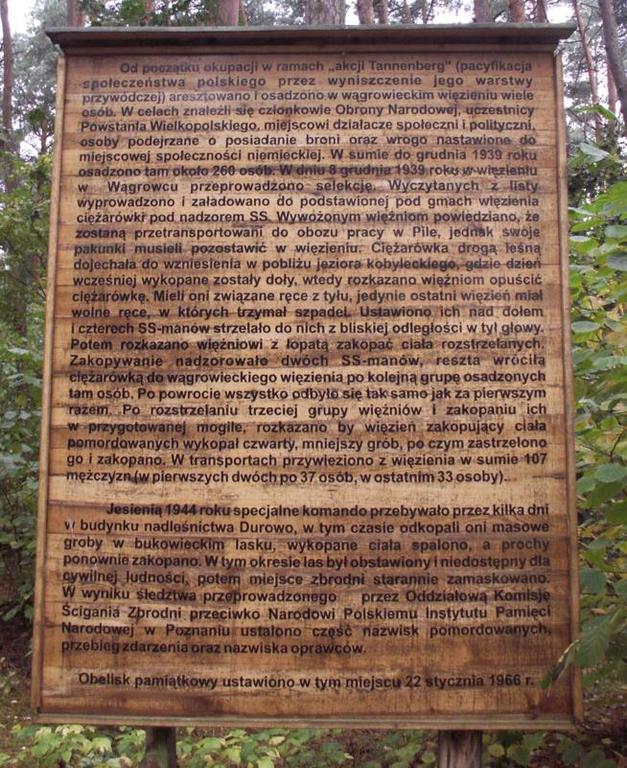 Od początku okupacji w ramach „akcji Tannenberg" (pacyfikacja
społeczeństwa polskiego przez wyniszczenie jego warstwy
przywódczej) aresztowano i osadzono w wągrowieckim więzieniu wiele
osób. W celach znaleźli się członkowie Obrony Narodowej, uczestnicy
Powstania Wielkopolskiego, miejscowi działacze społeczni i polityczni,
osoby podejrzane o posiadanie broni oraz wrogo nastawione do
miejscowej społeczności niemieckiej. W sumie do grudnia 1939 roku
osadzono tam około 260 osób. W dniu 8 grudnia 1939 roku w więzieniu
w Wągrowcu przeprowadzono selekcję. Wyczytanych z listy
wyprowadzono i załadowano do podstawionej pod gmach więzienia
ciężarówki pod nadzorem SS. Wywożonym więźniom powiedziano, że
zostaną przetransportowani do obozu pracy w Pile, jednak swoje
pakunki musieli pozostawić w więzieniu. Ciężarówka drogą leśną
dojechała do wzniesienia w pobliżu jeziora kobyleckiego, gdzie dzień
wcześniej wykopane zostały doły, wtedy rozkazano więźniom opuścić
ciężarówkę. Mieli oni związane ręce z tyłu, jedynie ostatni więzień miał
wolne ręce, w których trzymał szpadel. Ustawiono ich nad dołem
i czterech SS-manów strzelało do nich z bliskiej odległości w tył głowy.
Potem rozkazano więźniowi z łopatą zakopać ciała rozstrzelanych.
Zakopywanie nadzorowało dwóch SS-manów, reszta wróciła
ciężarówką do wągrowieckiego więzienia po kolejną grupę osadzonych
tam osób. Po powrocie wszystko odbyło się tak samo jak za pierwszym
razem. Po rozstrzelaniu trzeciej grupy więźniów i zakopaniu ich
w przygotowanej mogile, rozkazano by więzień zakopujący ciała
pomordowanych wykopał czwarty, mniejszy grób, po czym zastrzelono
go i zakopano. W transportach przywieziono z więzienia w sumie 107
mężczyzn (w pierwszych dwóch po 37 osób, w ostatnim 33 osoby).
Jesienią 1944 roku specjalne komando przebywało przez kilka dni
w budynku nadleśnictwa Durowo, w tym czasie odkopali oni masowe
groby w bukowieckim lasku, wykopane ciała spalono, a prochy
ponownie zakopano. W tym okresie las był obstawiony i niedostępny dla
cywilnej ludności, potem miejsce zbrodni starannie zamaskowano.
W wyniku śledztwa przeprowadzonego przez Oddziałową Komisję
Ścigania Zbrodni przeciwko Narodowi Polskiemu Instytutu Pamięci
Narodowej w Poznaniu ustalono część nazwisk pomordowanych,
przebieg zdarzenia oraz nazwiska oprawców.
Obelisk pamiątkowy ustawiono w tym miejscu 22 stycznia 1966 r.